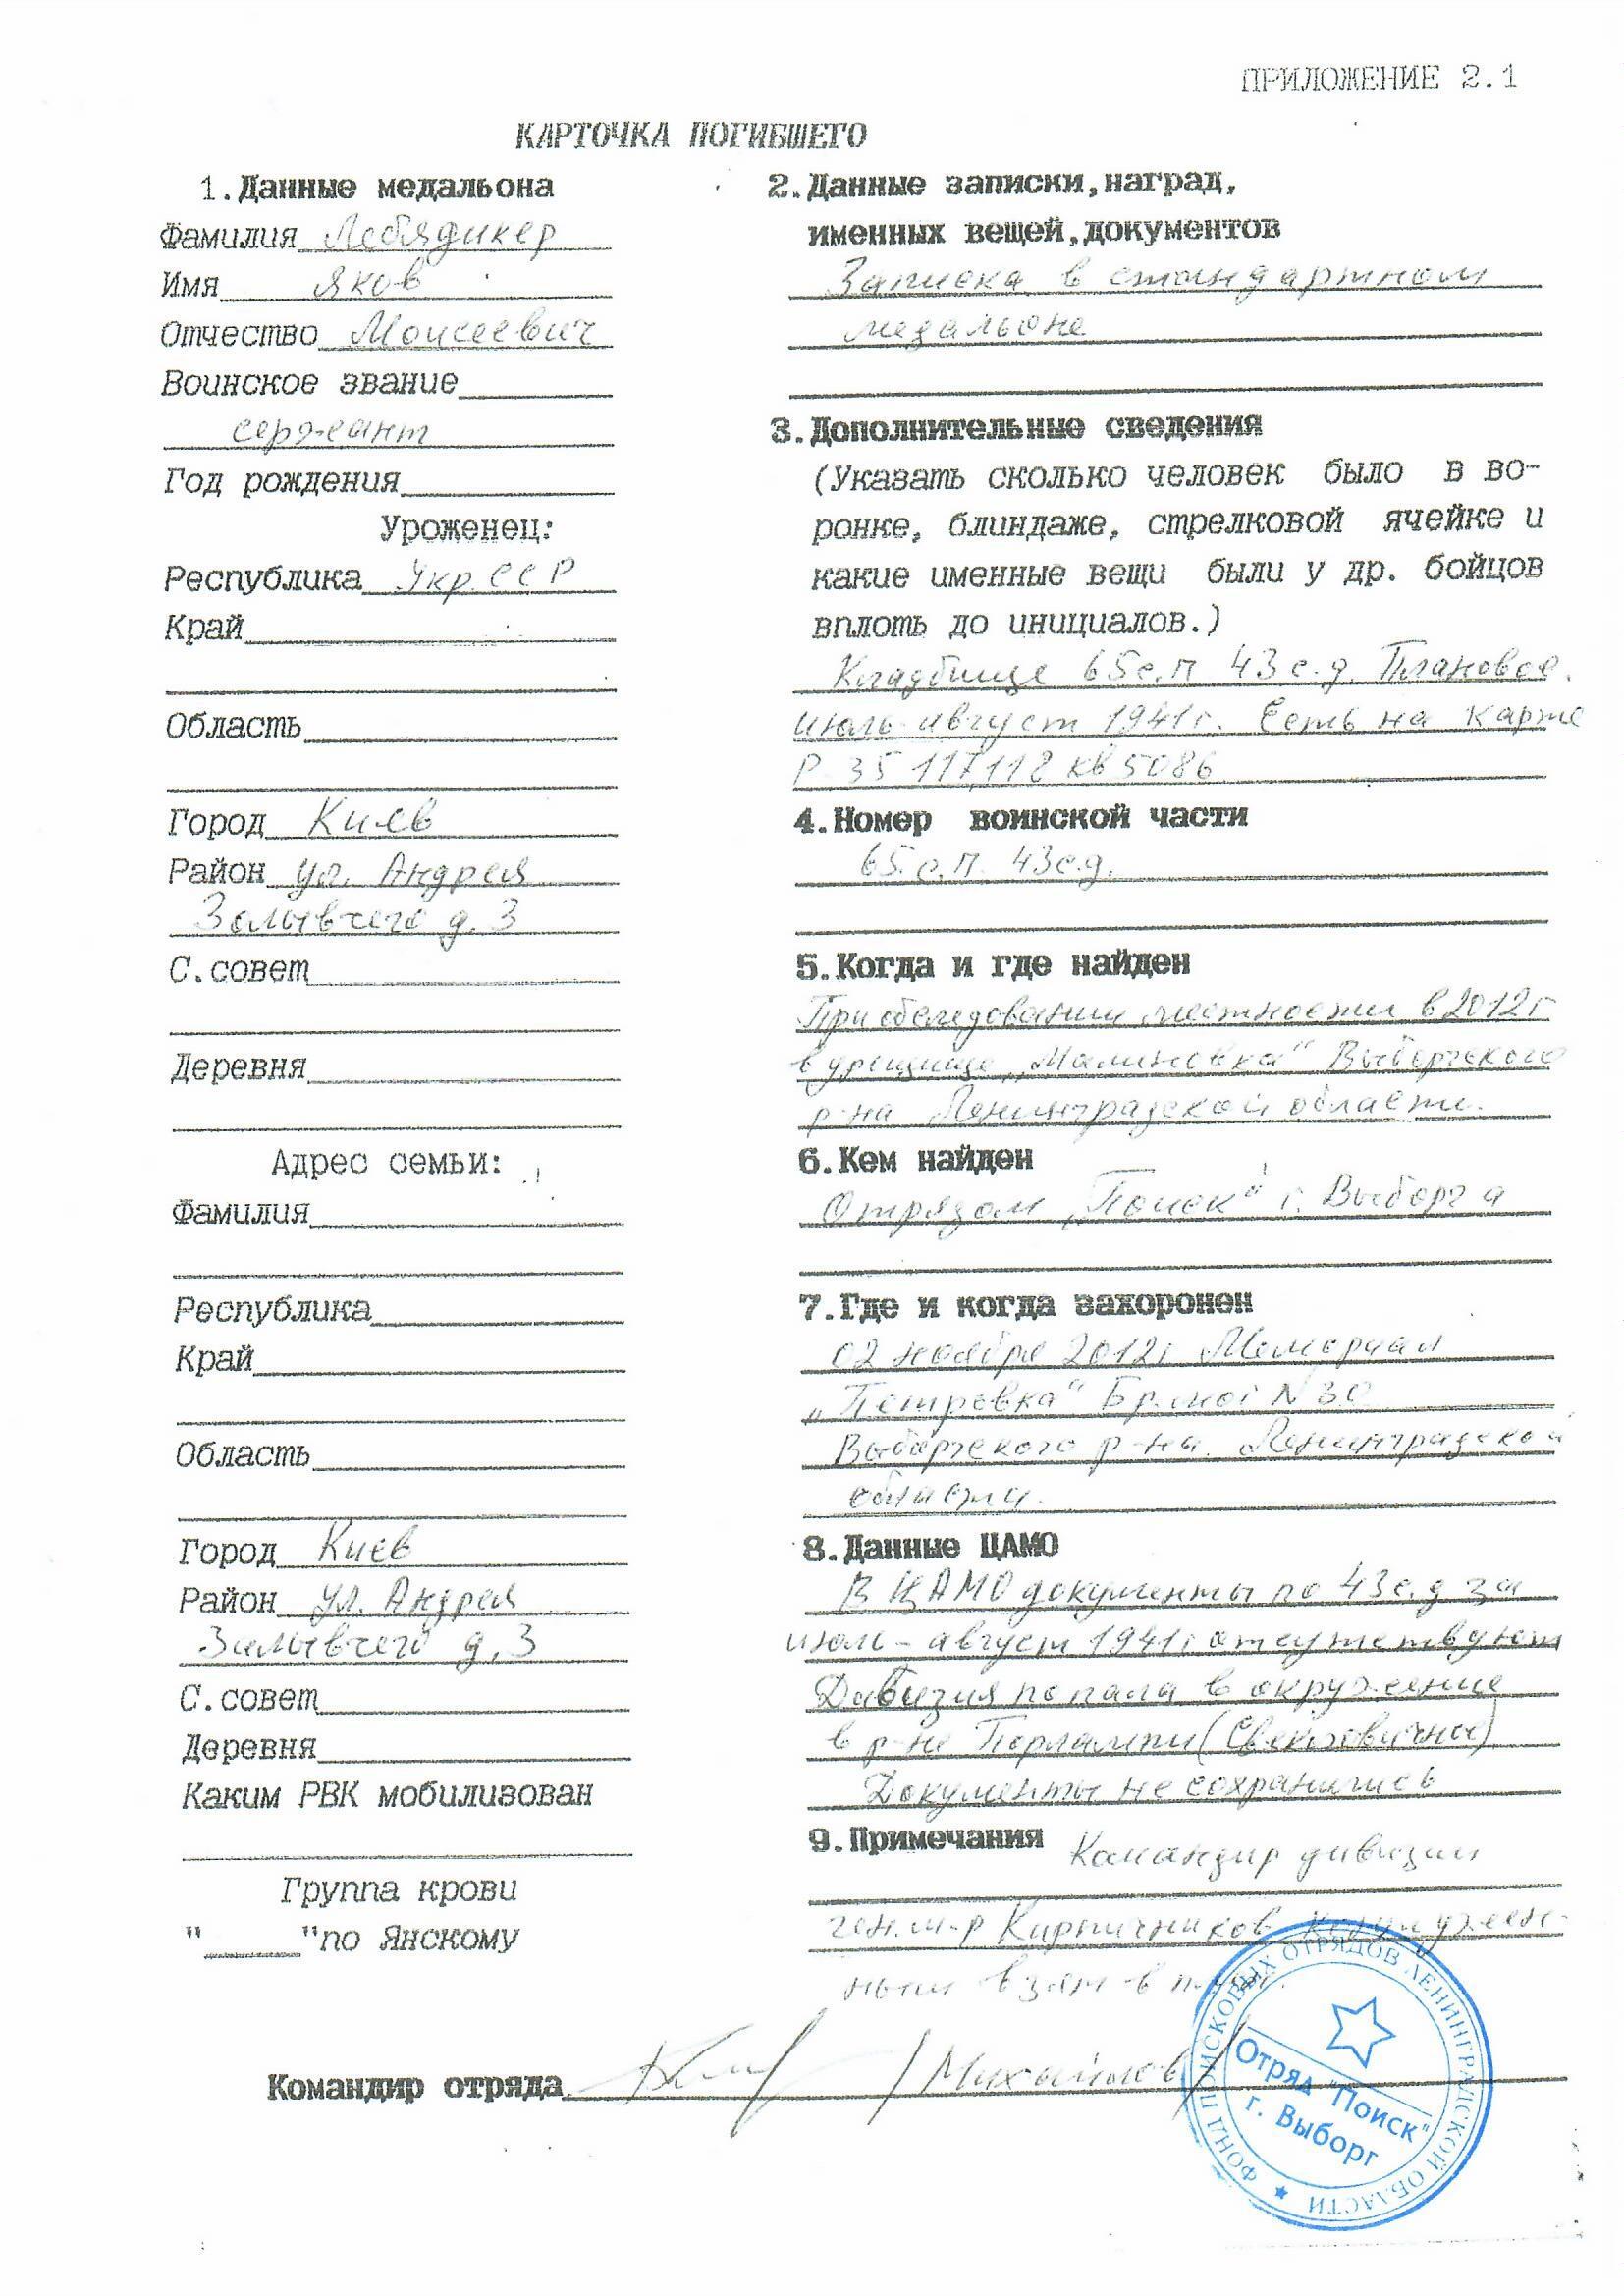 ПРИЛОЖЕНИЕ 2.1
КАРТОЧКА ПОГИБШЕГО
1.Данные медальона
Фамилия Лебядикер
Имя Яков
Отчество Моисеевич
Воинское звание
сержант
Год рождения
Уроженец:
Республика Укр. ССР
Край
Область
Город Киев
Район ул. Андрея
д. 3
С.совет
Деревня
Адрес семьи:
Фамилия
Республика
Край
Область
Город Киев
Район ул. Андрея
д. 3
С.совет
Деревня
Каким РВК мобилизован
Группа крови
"_____"по Янскому
2.Данные записки,наград,
именных вещей,документов
Записка в стандартном
медальоне
3.Дополнительные сведения
(Указать сколько человек было в во-
ронке, блиндаже, стрелковой ячейке и
какие именные вещи были у др. бойцов
вплоть до инициалов.)
Кладбище 65 с.п 43 с.д. Плановое.
июль-август 1941г. Есть на карте
Р-35 117,118 кв 5086
4.Номер воинской части
65.с.п. 43с.д.
5.Когда и где найден
При обследовании местности в 2012г
в урочище „Малиновка" Выборгского
р-на Ленинградской области.
6.Кем найден
Отрядом „Поиск" г. Выборга
7.Где и когда захоронен
02 ноября 2012г Мемориал
„Петровка" Бр.мог N 30
Выборгского р-на. Ленинградской
области.
8.Данные ЦАМО
В ЦАМО документы по 43с.д за
июль-август 1941г отсутствуют
Дивизия попала в окружение
в р-не Порлампи
Документы не сохранились
9.Примечания Командир дивизии
ген.м-р Кирпичников контужен-
ным взят в плен.
Командир отряда /Михайлов/
ФОНД ПОИСКОВЫХ ОТРЯДОВ ЛЕНИНГРАДСКОЙ ОБЛАСТИ
Отряд "Поиск"
г. Выборг